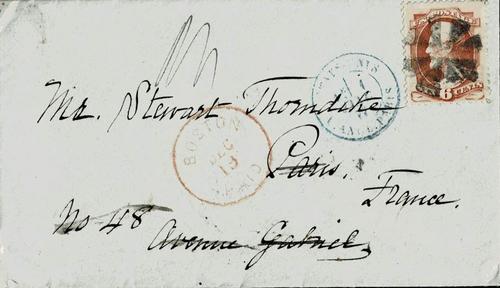 Mr. Stewart Thorndike
Paris,
France.
No 48
Avenue Gabriel
BOSTON
DEC
13
PAID
6 CENTS